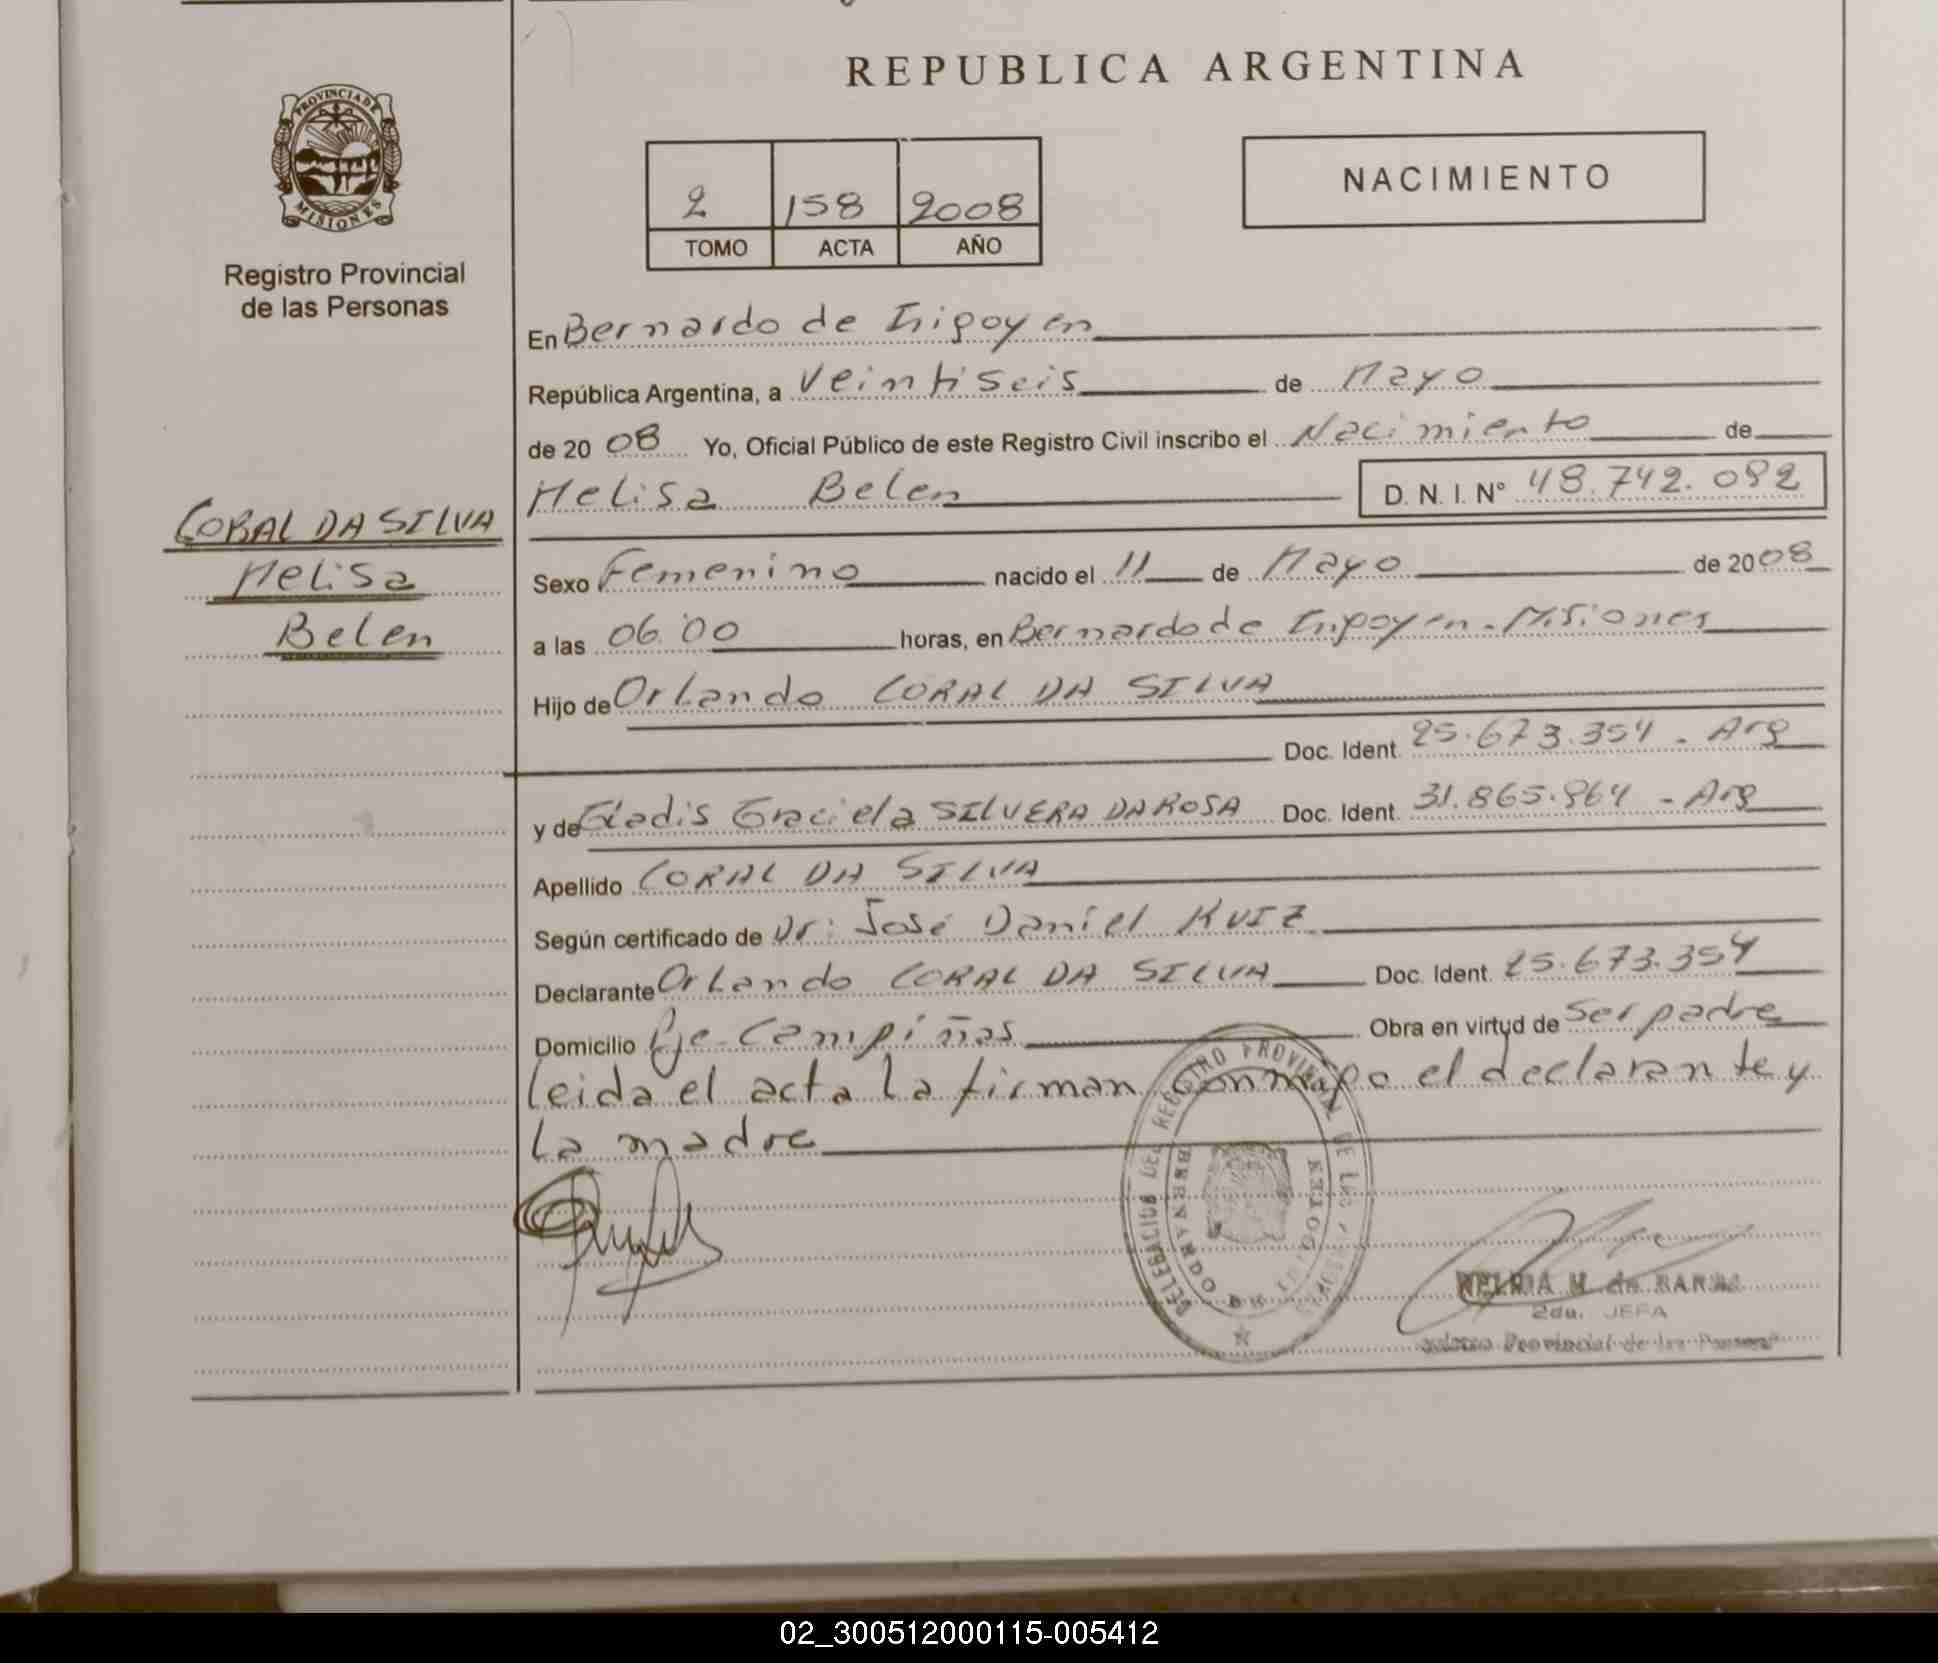 REPUBLICA ARGENTINA
PROVINCIA DE
MISIONES
Registro Provincial
de las Personas
2 158 2008
TOMO ACTA AÑO
NACIMIENTO
En Bernardo de Irigoyen
República Argentina, a Veintiseis de Mayo
de 20 08 Yo, Oficial Público de este Registro Civil inscribo el Nacimiento de
Melisa Belen D. N. I. N° 48.742.082
CORAL DA SILVA
Melisa
Belen
Sexo Femenino nacido el 11 de Mayo de 20 08
a las 06:00 horas, en Bernardo de Irigoyen - Misiones
Hijo de Orlando CORAL DA SILVA
Doc. Ident. 25.673.354 - Arg
y de Gladis Graciela SILVERA DA ROSA Doc. Ident. 31.865.964 - Arg
Apellido CORAL DA SILVA
Según certificado de Dr: José Daniel RUIZ
Declarante Orlando CORAL DA SILVA Doc. Ident. 25.673.354
Domicilio Pje - Campiñas Obra en virtud de ser padre
Leida el acta la firman conmigo el declarante y
la madre
DELEGACION DEL REGISTRO PROVINCIAL DE LAS
BERNARDO
de
2da. JEFA
Provincial de las Personas
02_300512000115-005412